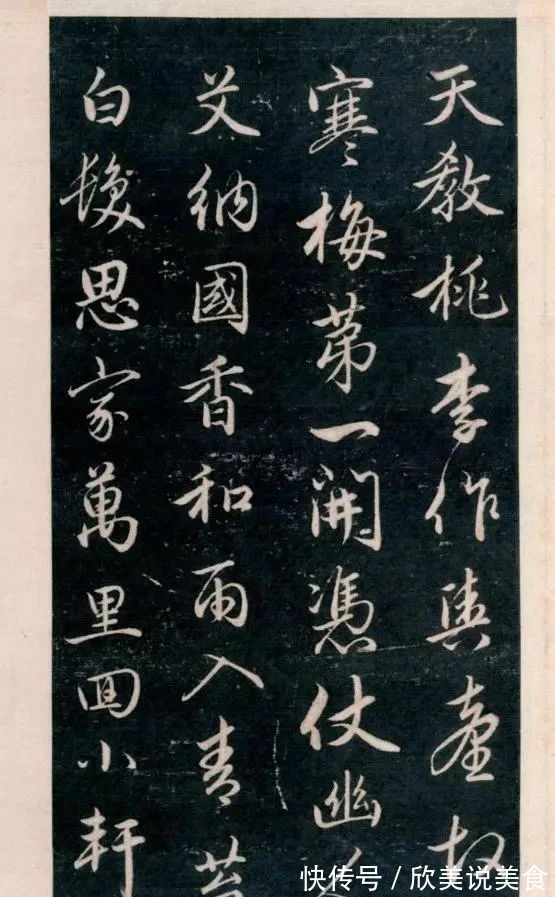 天教桃李作輿臺故
寒梅第一開憑仗幽人
艾納國香和雨入青苔
白髮思家萬里回小軒
快传号/欣美说美食